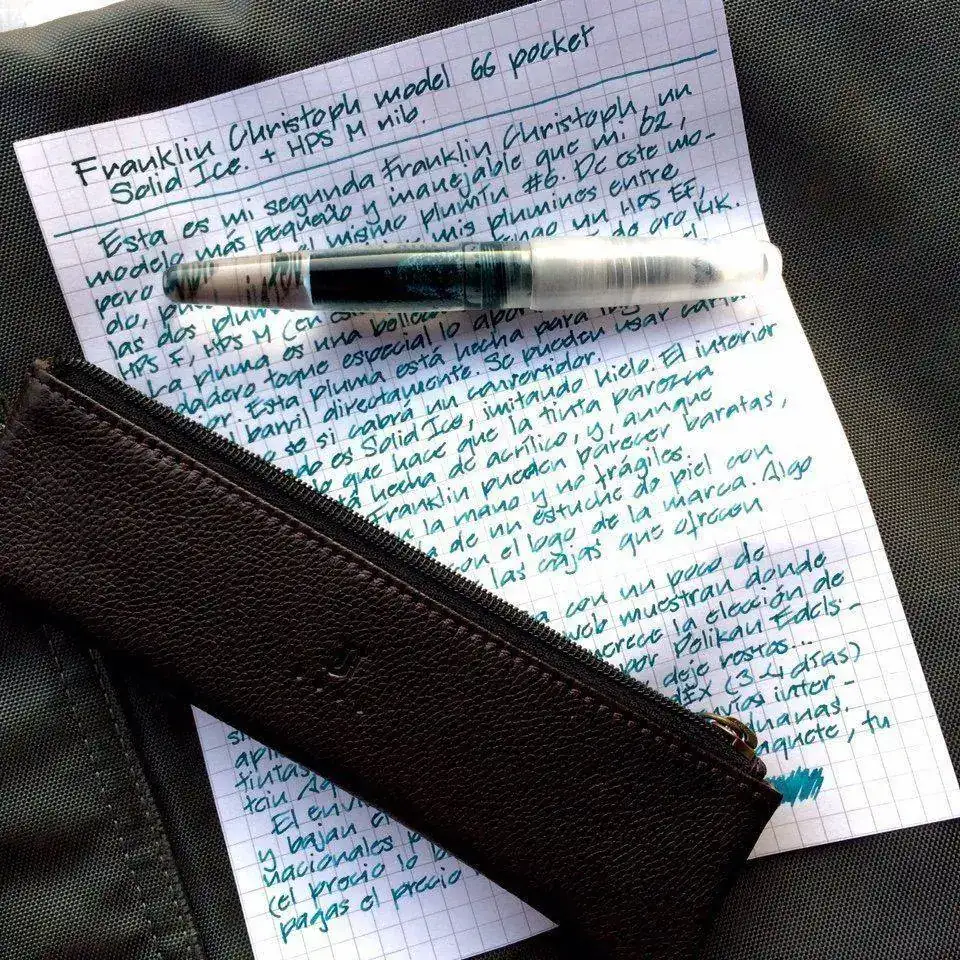 Franklin Christoph model 66 pocket
Solid Ice. + HPS M nib.
Esta es mi segunda Franklin Christoph, un
modelo más pequeño y manejable que mi 02,
pero el mismo plumín #6. De este mo-
do, mis plumines entre
las dos un HPS EF,
HPS F, HPS M (en de oro 14K.
La pluma es una
dadero toque especial lo
or. Esta pluma está hecha para
barril directamente. Se pueden usar
se si cabrá un convertidor.
do es Solid Ice, imitando hielo. El interior
lo que hace que la tinta parezca
hecha de acrílico, y, aunque
Franklin pueden parecer baratas,
la mano y no frágiles.
de un estuche de piel con
on el logo de la marca. Algo
las cajas que ofrecen
con un poco de
web muestran donde
la elección de
por Pelikan Edels-
deje restos...
(3-4 días)
inter-
tintas
El
y bajan
nacionales
(el precio lo
pagas el precio
aquete, tu